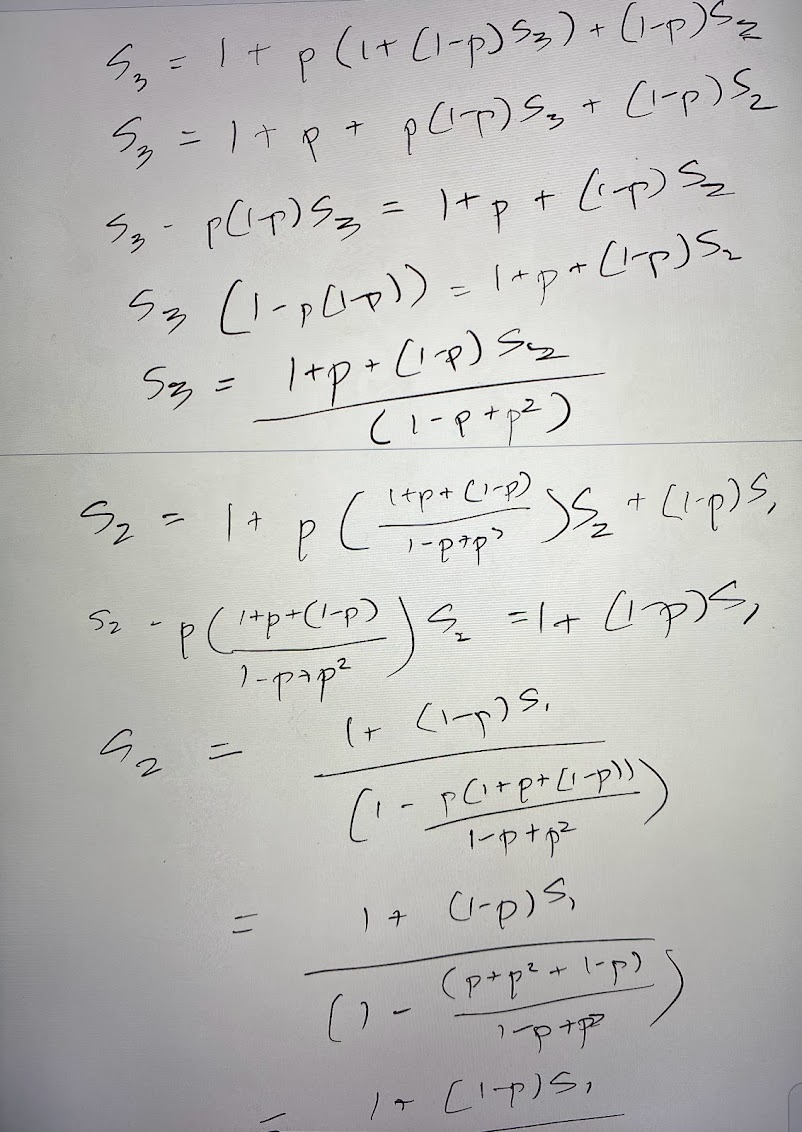 S₃ = 1 + p (1 + (1-p) S₃) + (1-p) S₂
S₃ = 1 + p + p(1-p) S₃ + (1-p) S₂
S₃ - p(1-p) S₃ = 1 + p + (1-p) S₂
S₃ (1 - p(1-p)) = 1 + p + (1-p) S₂
S₃ = (1 + p + (1-p) S₂) / (1 - p + p²)
S₂ = 1 + p ((1 + p + (1-p)) / (1 - p + p²)) S₂ + (1-p) S₁
S₂ - p ((1 + p + (1-p)) / (1 - p + p²)) S₂ = 1 + (1-p) S₁
S₂ = (1 + (1-p) S₁) / (1 - p(1 + p + (1-p)) / (1 - p + p²))
= (1 + (1-p) S₁) / (1 - (p + p² + 1-p) / (1 - p + p²))
= 1 + (1-p) S₁